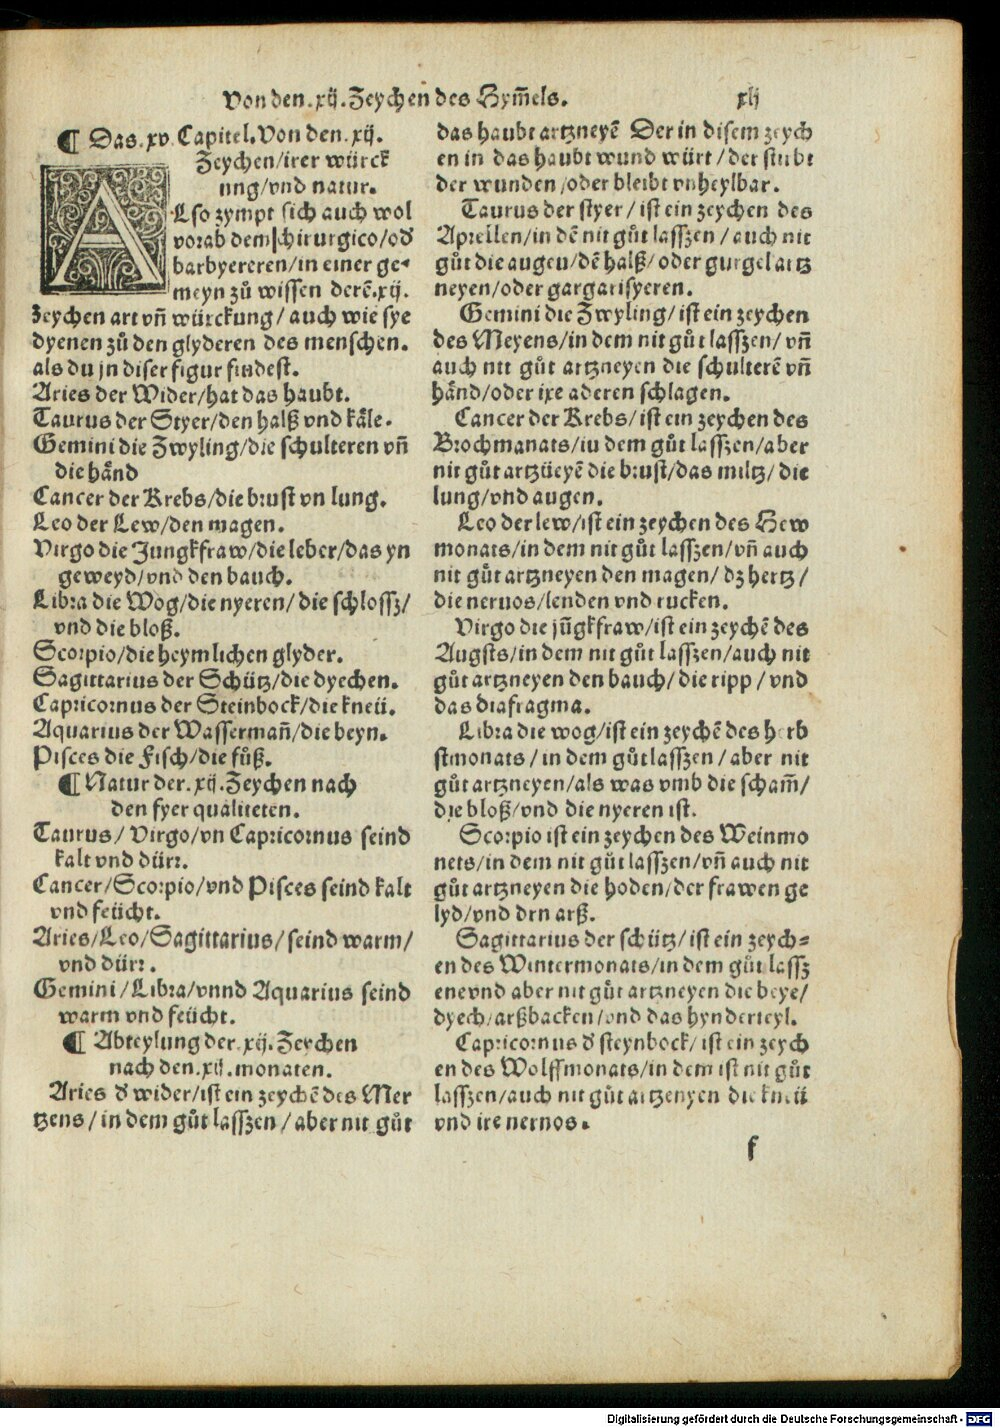 Von den .xij. Zeychen des Hym̃els.
xlj
¶ Das .xv. Capitel. Von den .xij.
Zeychen/irer würck
ung/vnd natur.
ALso zympt sich auch wol
vorab dem chirurgico/oď
barbyereren/in einer ge⸗
meyn zů wissen derẽ .xij.
Zeychen art vñ würckung/ auch wie sye
dyenen zů den glyderen des menschen.
als du jn diser figur findest.
Aries der Wider/hat das haubt.
Taurus der Styer/den halß vnd käle.
Gemini die Zwyling/die schulteren vñ
die händ
Cancer der Krebs/die brust vn lung.
Leo der Lew/den magen.
Virgo die Jungkfraw/die leber/das yn
geweyd/vnd den bauch.
Libra die Wog/die nyeren/ die schlossz/
vnd die bloß.
Scorpio/die heymlichen glyder.
Sagittarius der Schütz/die dyechen.
Capricornus der Steinbock/die kneü.
Aquarius der Wassermañ/die beyn.
Pisces die Fisch/die fůß.
¶ Natur der .xij. Zeychen nach
den fyer qualiteten.
Taurus/ Virgo/vn Capricornus seind
kalt vnd dürr.
Cancer/Scorpio/vnd Pisces seind kalt
vnd feücht.
Aries/Leo/Sagittarius/ seind warm/
vnd dürr.
Gemini/Libra/vnnd Aquarius seind
warm vnd feücht.
¶ Abteylung der .xij. Zeychen
nach den .xij. monaten.
Aries ď wider/ist ein zeychẽ des Mer
tzens/ in dem gůt lasszen/ aber nit gůt
das haubt artzneyẽ Der in disem zeych
en in das haubt wund würt/der stirbt
der wunden/oder bleibt vnheylbar.
Taurus der styer/ ist ein zeychen des
Aprellen/in dẽ nit gůt lasszen/ auch nit
gůt die augen/dẽ halß/ oder gurgel artz
neyen/oder gargarisyeren.
Gemini die Zwyling/ ist ein zeychen
des Meyens/in dem nit gůt lasszen/ vñ
auch nit gůt artzneyen die schulterẽ vñ
händ/oder ire aderen schlagen.
Cancer der Krebs/ ist ein zeychen des
Brochmanats/in dem gůt lasszen/aber
nit gůt artzüeyẽ die brust/das miltz/ die
lung/vnd augen.
Leo der lew/ist ein zeychen des Hew
monats/in dem nit gůt lasszen/vñ auch
nit gůt artzneyen den magen/ dz hertz/
die neruos/lenden vnd rucken.
Virgo die jũgkfraw/ist ein zeychẽ des
Augsts/in dem nit gůt lasszen/auch nit
gůt artzneyen den bauch/ die ripp/ vnd
das diafragma.
Libra die wog/ist ein zeychẽ des herb
stmonats/ in dem gůt lasszen/ aber nit
gůt artzneyen/als was vmb die scham̃/
die bloß/vnd die nyeren ist.
Scorpio ist ein zeychen des Weinmo
nets/in dem nit gůt lasszen/vñ auch nit
gůt artzneyen die hoden/der frawen ge
lyd/vnd den arß.
Sagittarius der schütz/ ist ein zeych⸗
en des Wintermonats/in dem gůt lassz
enevnd aber nit gůt artzneyen die beye/
dyech/arßbacken/vnd das hynderteyl.
Capricornus ď steynbock/ ist ein zeych
en des Wolffmonats/in dem ist nit gůt
lasszen/auch nit gůt artzenyen die kneü
vnd ire nernos.
f
Digitalisierung gefördert durch die Deutsche Forschungsgemeinschaft - DFG